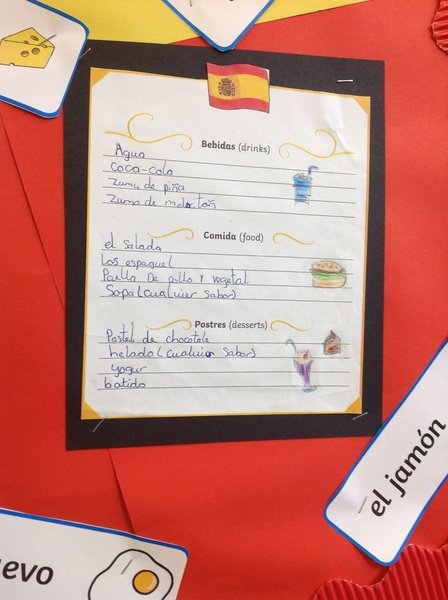 Bebidas (drinks)
Agua
Coca-cola
Zumu de piña
Zumo de melotoñ
Comida (food)
el Salada
Los espaguel
Paella De pollo y vegetal
Sopa (Cualuier Sabor)
Postres (desserts)
Pastel de chocotale
helado (Cualuier Sabor)
yogur
batido
el jamón
uevo